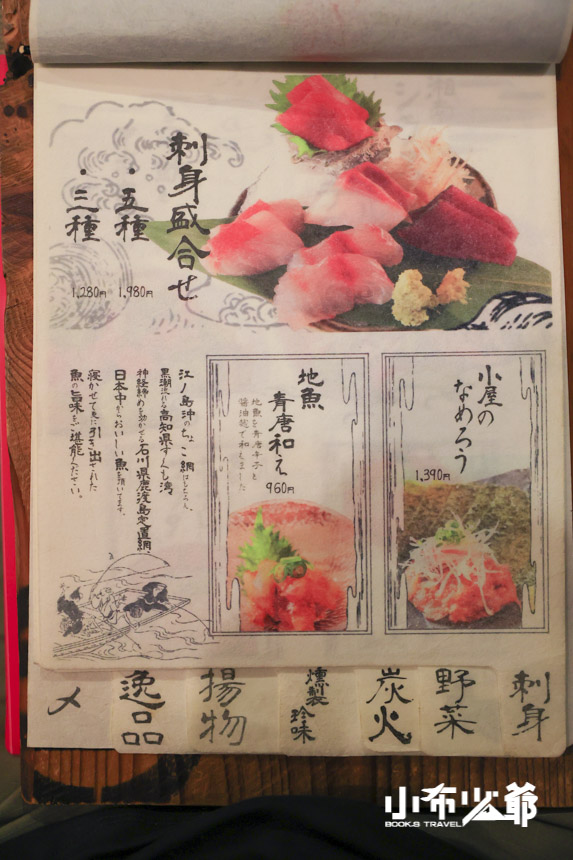 刺身盛合せ
・五種
1,980円
・三種
1,280円
小屋の
なめろう
1,390円
地魚
青唐和え
地魚を青唐辛子と
醤油麹で和えました
960円
江ノ島沖のちょこ網はもちろん、
黒潮流れる高知県すくも湾
神経締めを効かせる石川県鹿渡島定置網、
日本中からおいしい魚を頂いてます。
寝かせて更に引き出された
魚の旨味をご堪能ください。
刺身
野菜
炭火
燻製
珍味
揚物
逸品
〆
小布少爺
BOOK.S TRAVEL